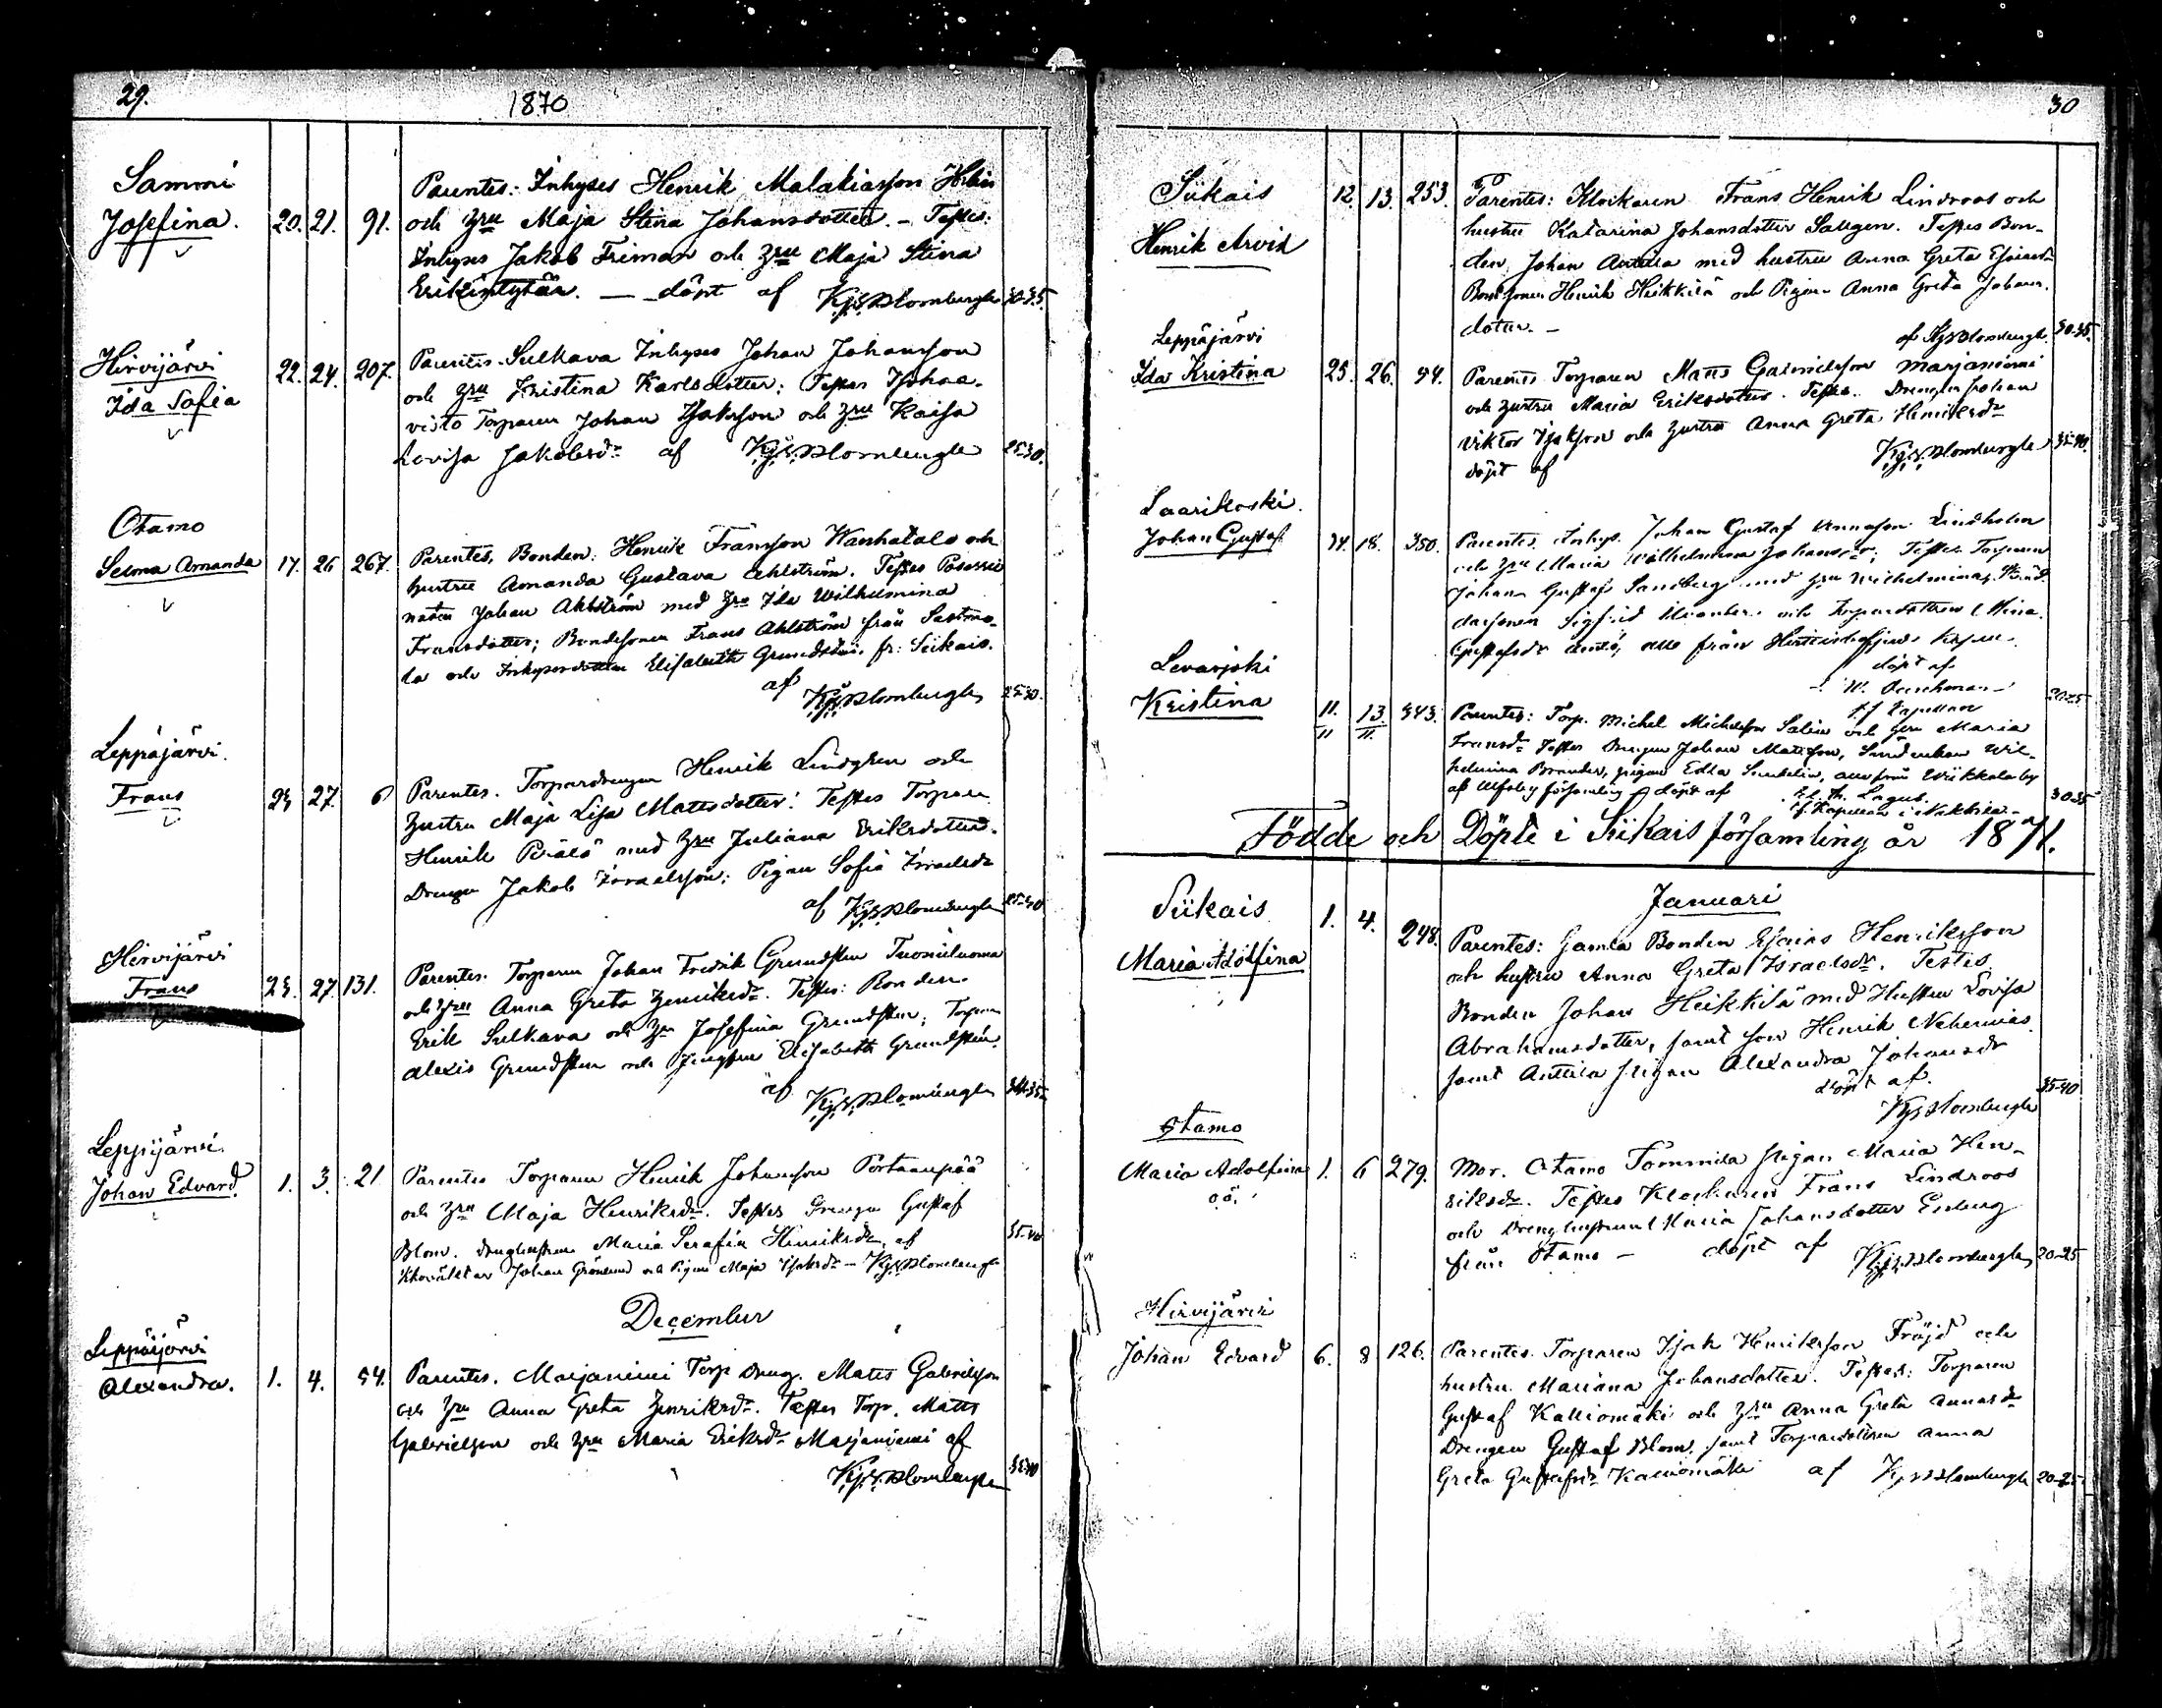 29.
1870
Sammi
Josefina. 20. 21. 91.
Parentes: Inhyses Henrik Malakiasson
och Hru Maja Stina Johansdotter. – Testes:
Inhyses Jakob Friman och Hru Maja Stina
Erikintytär. — döpt af K.J.S. Blombergh 30-35.
Hirvijärvi
Ida Sofia 22. 24. 207.
Parentes. Sulkava Inhyses Johan Johansson
och Hru Kristina Karlsdotter: Testes
Torparen Johan Isaksson och Hru Kaisa
Lovisa Jakobsdr af K.J.S. Blombergh 25-30.
Otamo
Selma Amanda 17. 26 267.
Parentes, Bonden: Henrik Fransson Wanhatalo och
hustru Amanda Gustava Ahlström. Testes
Johan Ahlström med Hru Ida Wilhelmina
Fransdotter; Bondesonen Frans Ahlström från Sastmo-
la och Inhysesdottren Elisabeth fr: Siikais.
af K.J.S. Blombergh 25-30.
Leppäjärvi.
Frans 27. 6
Parentes. Torpardrengen Henrik Lindgren och
Hustru Maja Lisa Mattsdotter: Testes Torparen
Henrik Perälä med Hru Juliana Eriksdotter.
Drengen Jakob Israelsson: Pigan Sofia Israelsdr
af K.J.S. Blombergh 25-30
Hirvijärvi
Frans 27. 131.
Parentes. Torparen Johan Fredrik Grundsten Tuomiluoma
och Hru Anna Greta Henriksdr. Testes: Bonden
Erik Sulkava och Hru Josefina Grundsten; Torparen
Alexis Grundsten och Jungfrun Elisabeth Grundstén.
af K.J.S. Blombergh
Leppijärvi.
Johan Edvard. 1. 3. 21
Parentes Torparen Henrik Johansson Portaanpää
och Hru Maja Henriksdr. Testes Drengen Gustaf
Blom. drenghustrun Maria Serafia Henriksdr, af
Johan Grönlund och Pigan Maja Isaksdr – K.J.S. Blombergh 35-40
December
Leppäijärvi
Alexandra. 1. 4. 54.
Parentes. Marjaniemi Torp Dreng. Matts Gabrielsson
och Hru Anna Greta Henriksdr. Testes Torp. Matts
Gabrielsson och Hru Maria Eriksdr Marjaniemi af
K.J.S. Blombergh
30
Siikais 12. 13. 253.
Henrik Arvid
Parentes: Klockaren Frans Henrik Lindroos och
hustru Katarina Johansdotter Sallgen. Testes Bon-
den Johan Anttila med hustru Anna Greta
Bondsonen Henrik Heikkilä och Pigan Anna Greta Johans-
dotter. –
af K.J.S. Blombergh. 30-35.
Leppäjärvi
Ida Kristina 25. 26. 54.
Parentes Torparen Matts Gabrielsson Marjaniemi
och Hustru Maria Eriksdotter. Testes. Drengen Johan
Viktor Isaksson och Hustru Anna Greta Henriksdr
döpt af K.J.S. Blombergh 35-40.
Saarikoski.
Johan Gustaf 18. 350.
Parentes Inhys. Johan Gustaf Lindholm
och Hru Maria Wilhelmina Johansdr; Testes Torparen
Johan Gustaf Sandberg med Hru Wilhelmina,
Sigfrid och Torparedottren Mina
Gustafsdr alla från
döpt af
Kapellan 20-25
Levasjoki
Kristina 11. 13. 343.
11 11.
Parentes: Torp. Michel Michelsson Salin och Hru Maria
Fransdr Testes Drengen Johan Mattsson, Wil-
helmina Brander, pigan Edla Sundelin, alla från by
af Ulfsby församling döpt af Th. Lagus.
Kapellan i 30-35
Födde och Döpte i Siikais församling år 1871.
Januari
Siikais 1. 4. 248.
Maria Adolfina
Parentes: Gamla Bonden Esaias Henriksson
och hustru Anna Greta Israelsdr. Testes
Bonden Johan Heikkilä med Hustru Lovisa
Abrahamsdotter, samt son Henrik Nehemias
samt Anttila pigan Alexandra Johansdr
döpt af.
K.J.S. Blombergh 35-40
Otamo
Maria Adolfina 1. 6 279.
oä.
Mor. Otamo Tommila pigan Maria Hen-
riksdr. Testes Klockaren Frans Lindroos
och Drenghustrun Maria Johansdotter Enberg
från Otamo – döpt af K.J.S. Blombergh 20-25
Hirvijärvi
Johan Edvard 6. 8 126.
Parentes. Torparen Isak Henriksson Fröjd och
hustru Mariana Johansdotter. Testes: Torparen
Gustaf Kalliomäki och Hru Anna Greta Annasdr
Drengen Gustaf Blom, samt Torparedottren Anna
Greta Gustafsdr Kalliomäki af K.J.S. Blombergh 20-25